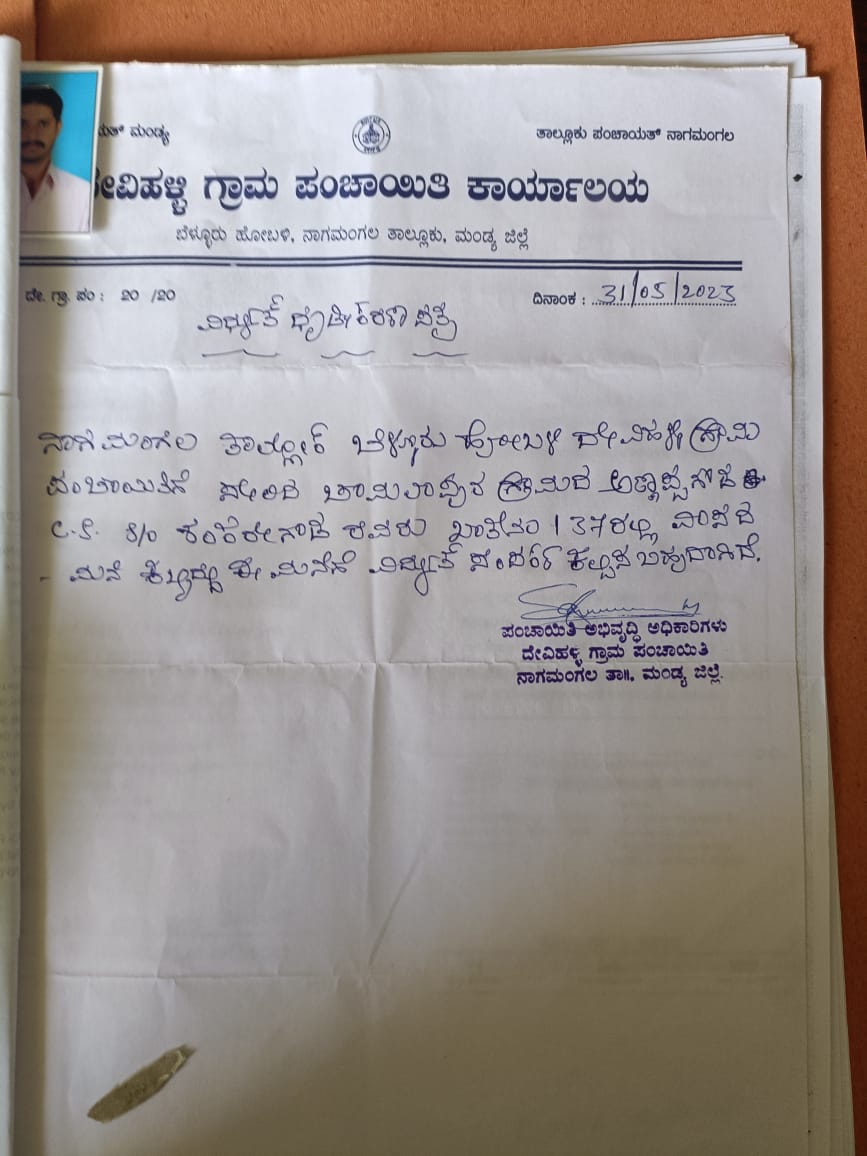 ಯತ್ ಮಂಡ್ಯ
ತಾಲ್ಲೂಕು ಪಂಚಾಯತ್ ನಾಗಮಂಗಲ
ದೇವಿಹಳ್ಳಿ ಗ್ರಾಮ ಪಂಚಾಯಿತಿ ಕಾರ್ಯಾಲಯ
ಬೆಳ್ಳೂರು ಹೋಬಳಿ, ನಾಗಮಂಗಲ ತಾಲ್ಲೂಕು, ಮಂಡ್ಯ ಜಿಲ್ಲೆ
ದೇ. ಗ್ರಾ. ಪಂ : 20 /20
ದಿನಾಂಕ : 31/05/2023
ವಿದ್ಯುತ್ ದೃಢೀಕರಣ ಪತ್ರ
ನಾಗಮಂಗಲ ತಾಲ್ಲೋಕ್ ಬೆಳ್ಳೂರು ಹೋಬಳಿ ದೇವಿಹಳ್ಳಿ ಗ್ರಾಮ
ಪಂಚಾಯಿತಿಗೆ ಸೇರಿದ ಚಾಮಲಾಪುರ ಗ್ರಾಮದ ಅಣ್ಣಪ್ಪಗೌಡ
ಸಿ.ಕೆ. S/O ಕಂಕೇರೇಗೌಡ ರವರು ಖಾತೆನಂ 137ರಲ್ಲಿ ವಾಸದ
- ಮನೆ ಕಟ್ಟಿದ್ದು ಈ ಮನೆಗೆ ವಿದ್ಯುತ್ ಸಂಪರ್ಕ ಕಲ್ಪಿಸ ಬಹುದಾಗಿದೆ.
ಪಂಚಾಯಿತಿ ಅಭಿವೃದ್ಧಿ ಅಧಿಕಾರಿಗಳು
ದೇವಿಹಳ್ಳಿ ಗ್ರಾಮ ಪಂಚಾಯಿತಿ
ನಾಗಮಂಗಲ ತಾ॥, ಮಂಡ್ಯ ಜಿಲ್ಲೆ.